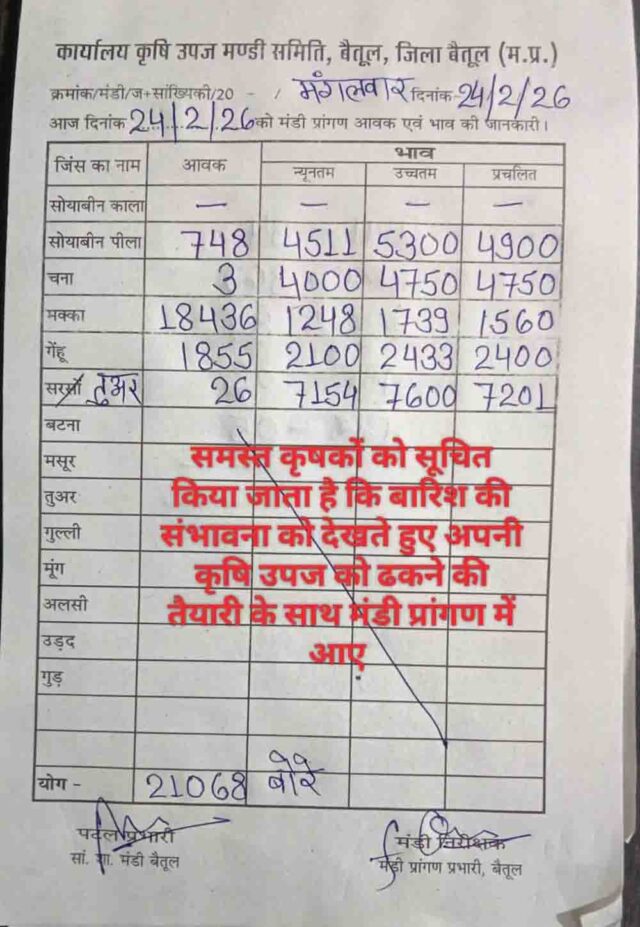 कार्यालय कृषि उपज मण्डी समिति, बैतूल, जिला बैतूल (म.प्र.)
क्रमांक/मंडी/ज+सांख्यिकी/20 - / मंगलवार दिनांक-24/2/26
आज दिनांक 24/2/26 को मंडी प्रांगण आवक एवं भाव की जानकारी।
जिंस का नाम आवक भाव
न्यूनतम उच्चतम प्रचलित
सोयाबीन काला — — — —
सोयाबीन पीला 748 4511 5300 4900
चना 3 4000 4750 4750
मक्का 18436 1248 1739 1560
गेंहू 1855 2100 2433 2400
सरसों तुअर 26 7154 7600 7201
बटना
मसूर
तुअर
गुल्ली
मूंग
अलसी
उड़द
गुड़
समस्त कृषकों को सूचित
किया जाता है कि बारिश की
संभावना को देखते हुए अपनी
कृषि उपज को ढकने की
तैयारी के साथ मंडी प्रांगण में
आए
योग - 21068 बोरे
प्रभारी मंडी निरीक्षक
सां. शा. मंडी बैतूल मंडी प्रांगण प्रभारी, बैतूल